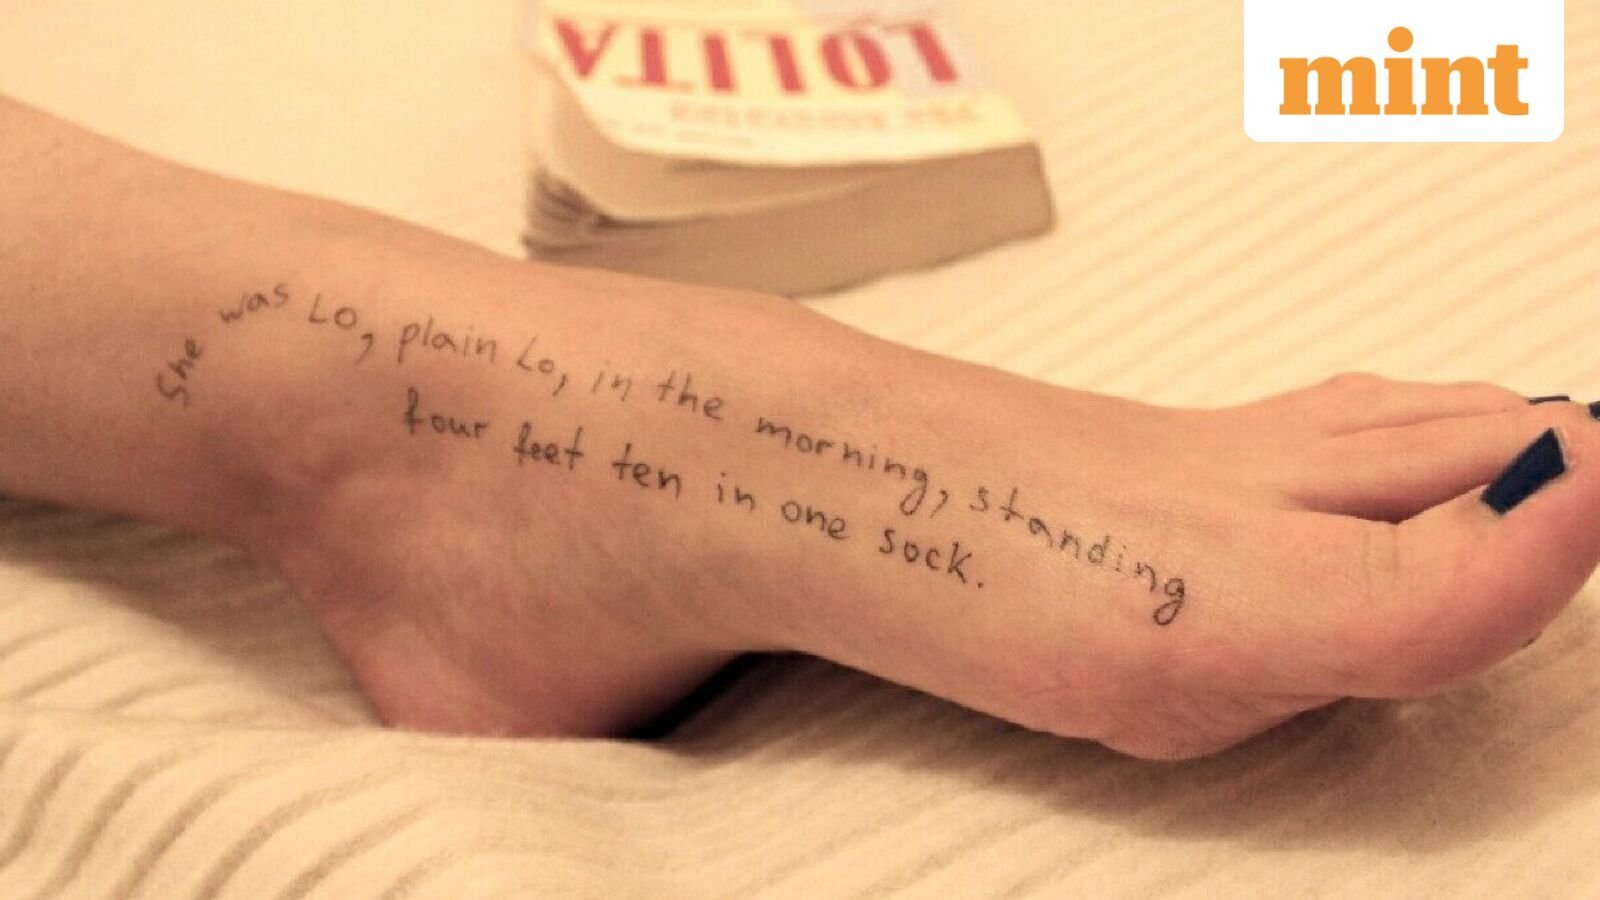 LOLITA
mint
She was Lo, plain Lo, in the morning, standing
four feet ten in one sock.